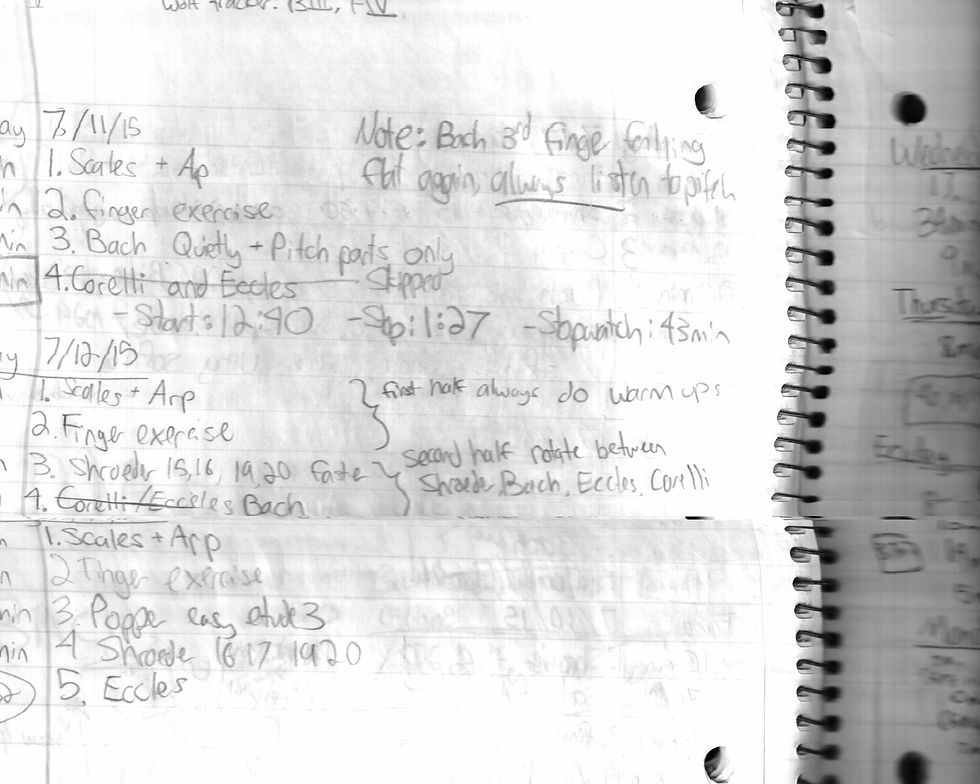 Wolf tracker: BIII, FIV.
ay 7/11/15
Note: Bach 3rd finge falling
flat again, always listen to pitch
1. Scales + Ap
2. finger exercise
3. Bach Quietly + Pitch parts only
4. Corelli and Eccles - Skipped
- Start: 12:40 - Stop: 1:27 - Stopwatch: 43min
7/12/15
1. Scales + Arp
2. Finger exercise
} first half always do warm ups
3. Shroeder 15,16, 19,20 faste
4. Corelli/Eccles Bach
} second half rotate between
Shroeder, Bach, Eccles, Corelli
1. Scales + Arp
2 Finger exercise
min 3. Popper easy etude 3
min 4 Shroeder 16 17 19 20
5. Eccles
Wedn
17
Thursda